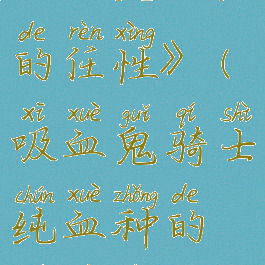 de rèn xìng
的任性》（
xī xuè guǐ qí shì
吸血鬼骑士
chún xuè zhǒng de
纯血种的